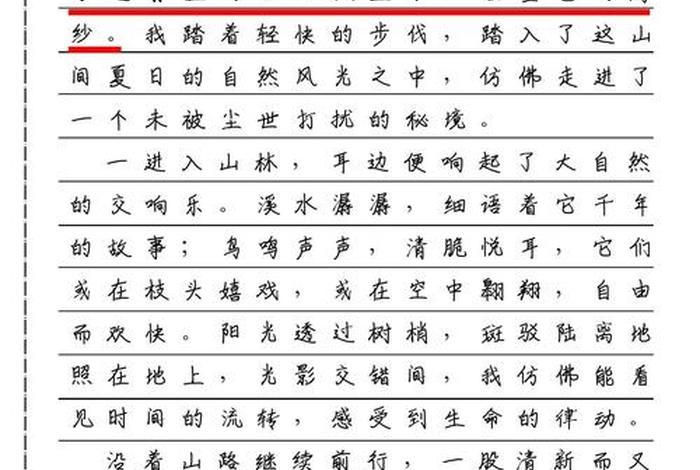 纱。我踏着轻快的步伐，踏入了这山
间夏日的自然风光之中，仿佛走进了
一个未被尘世打扰的秘境。
一进入山林，耳边便响起了大自然
的交响乐。溪水潺潺，细语着它千年
的故事；鸟鸣声声，清脆悦耳，它们
或在枝头嬉戏，或在空中翱翔，自由
而欢快。阳光透过树梢，斑驳陆离地
照在地上，光影交错间，我仿佛能看
见时间的流转，感受到生命的律动。
沿着山路继续前行，一股清新而又